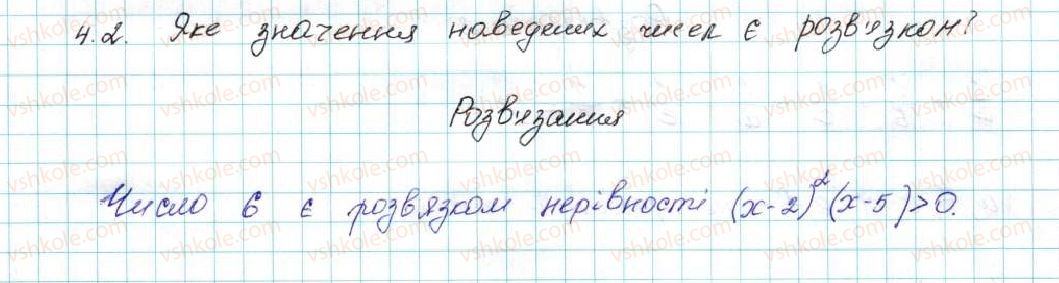 4.2. Яке значення наведених чисел є розв'язком?
Розв'язання
Число 6 є розвязком нерівності (x-2)²(x-5)>0.